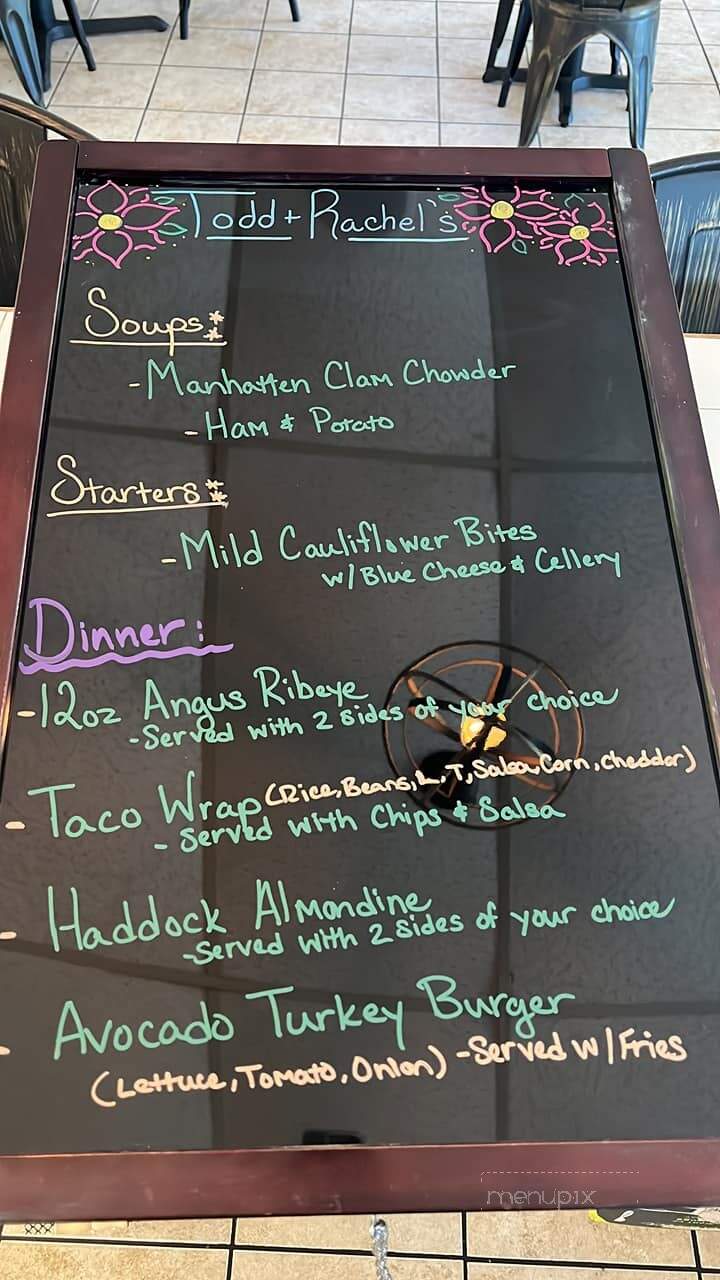 Todd + Rachel's
Soups:
- Manhatten Clam Chowder
- Ham & Potato
Starters:
- Mild Cauliflower Bites
w/Blue Cheese & Cellery
Dinner:
- 12oz Angus Ribeye
- Served with 2 sides of your choice
- Taco Wrap (Rice, Beans, L, T, Salsa, Corn, Cheddar)
- Served with Chips & Salsa
- Haddock Almondine
- Served with 2 sides of your choice
- Avocado Turkey Burger
(Lettuce, Tomato, Onion) - Served w/Fries
menupix